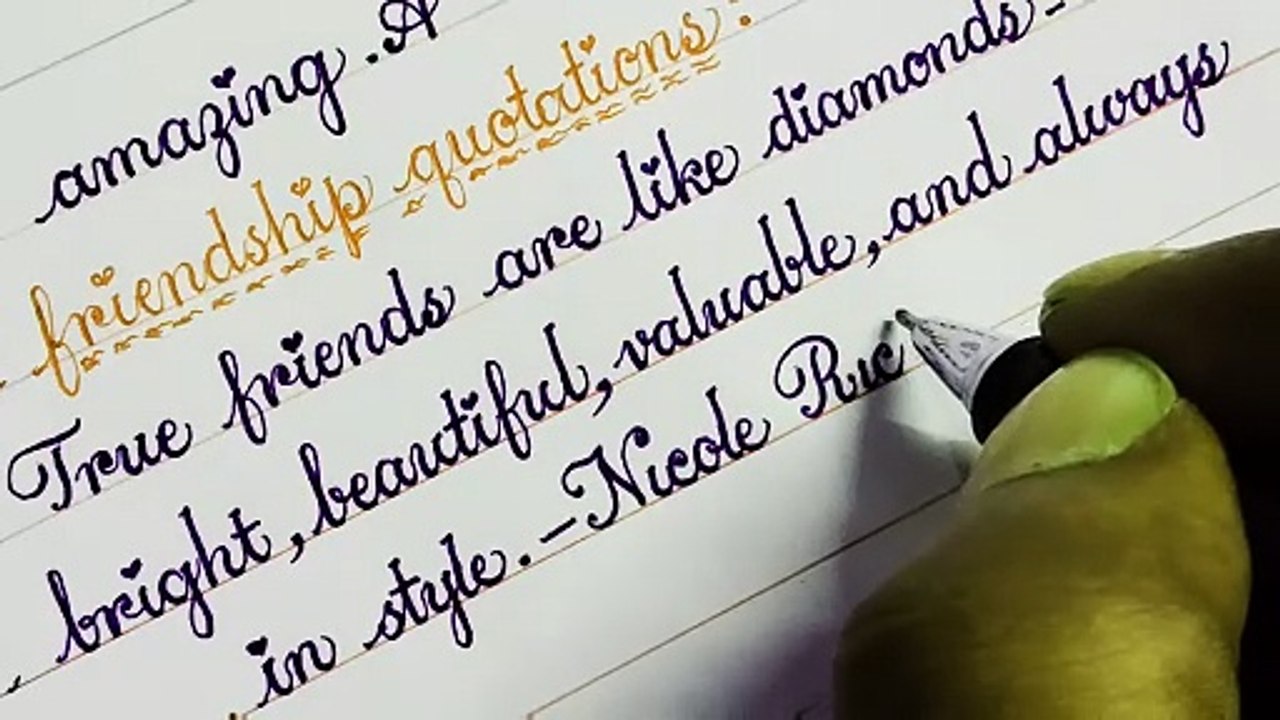 amazing. A
friendship quotations :
True friends are like diamonds -
bright, beautiful, valuable, and always
in style. - Nicole Ric